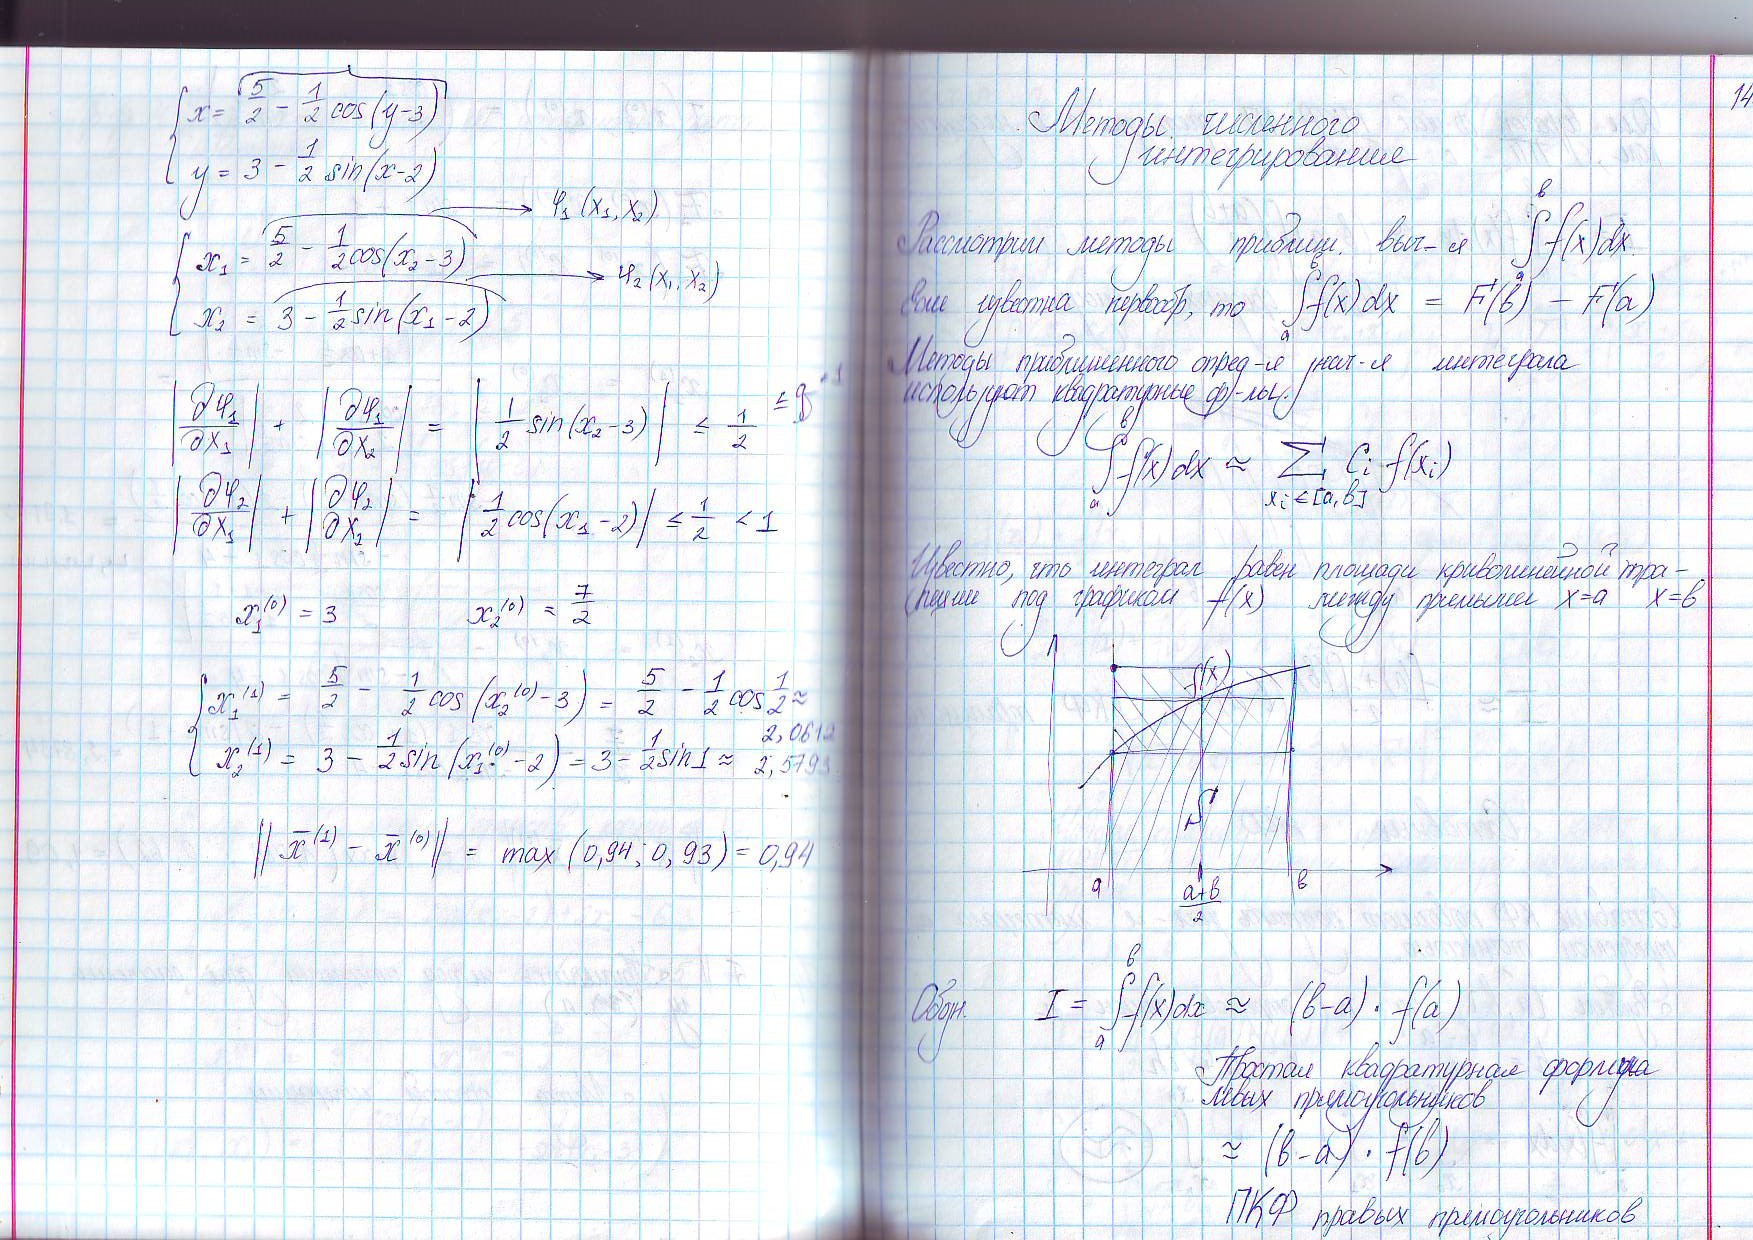 x = 5/2 - 1/2 cos(y-3)
y = 3 - 1/2 sin(x-2)
φ₁(x₁, x₂)
x₁ = 5/2 - 1/2 cos(x₂-3)
φ₂(x₁, x₂)
x₂ = 3 - 1/2 sin(x₁-2)
|∂φ₁/∂x₁| + |∂φ₁/∂x₂| = |1/2 sin(x₂-3)| ≤ 1/2 ≤ q < 1
|∂φ₂/∂x₁| + |∂φ₂/∂x₂| = |1/2 cos(x₁-2)| ≤ 1/2 < 1
x₁⁽⁰⁾ = 3 x₂⁽⁰⁾ = 7/2
x₁⁽¹⁾ = 5/2 - 1/2 cos(x₂⁽⁰⁾-3) = 5/2 - 1/2 cos 1/2 ≈ 2,0612
x₂⁽¹⁾ = 3 - 1/2 sin(x₁⁽⁰⁾-2) = 3 - 1/2 sin1 ≈ 2,5793
||x̄⁽¹⁾ - x̄⁽⁰⁾|| = max(0,94; 0,93) = 0,94
14
Методы численного
интегрирования
Рассмотрим методы приближ. выч-я ∫ₐᵇ f(x)dx.
Если известна первообр, то ∫ₐᵇ f(x)dx = F(b) - F(a)
Методы приближенного опред-я знач-я интеграла
используют квадратурные ф-лы.
∫ₐᵇ f(x)dx ≈ Σ Cᵢ f(xᵢ)
xᵢ∈[a,b]
Известно, что интеграл равен площади криволинейной тра-
пеции под графиком f(x) между прямыми x=a x=b
f(x)
S
a (a+b)/2 b
Обозн. I = ∫ₐᵇ f(x)dx ≈ (b-a)·f(a)
Простая квадратурная формула
левых прямоугольников
≈ (b-a)·f(b)
ПКФ правых прямоугольников